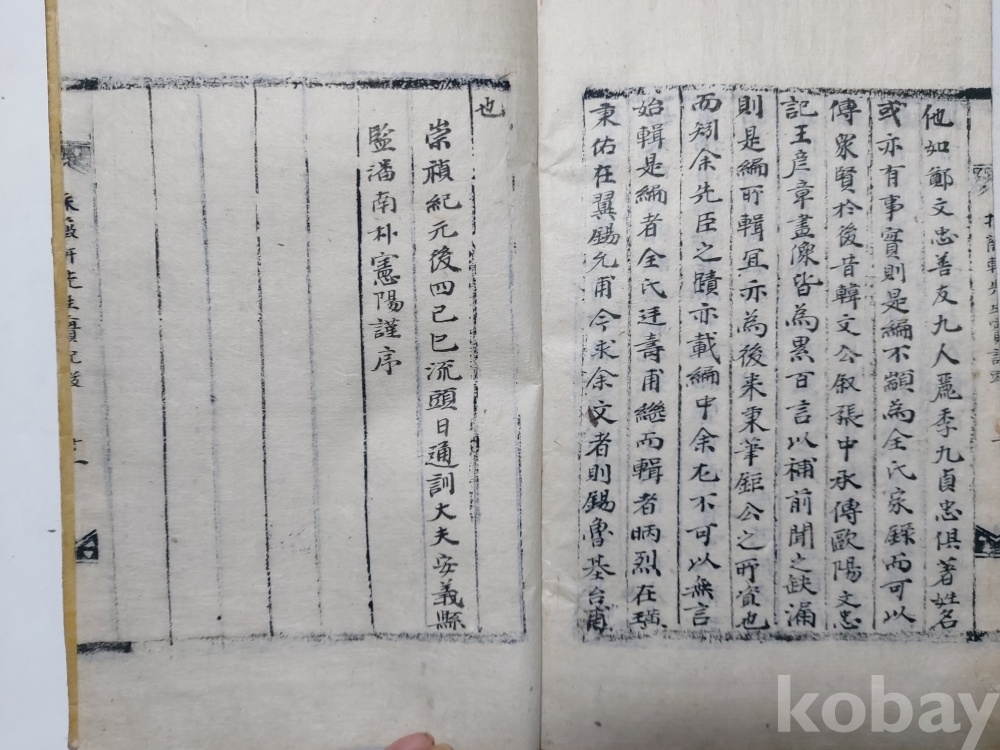 他如鄭文忠善友九人麗季九貞忠俱著姓名
或亦有事實則是編不顓為全氏家錄而可以
傳眾賢於後昔韓文公敘張中丞傳歐陽文忠
記王彦章畫像皆為累百言以補前聞之缺漏
則是編所輯宜亦為後来秉筆鉅公之所資也
而矧余先臣之蹟亦載編中余尤不可以無言
始輯是編者全氏廷壽甫繼而輯者昞烈在璜
秉佑在翼賜允甫今求余文者則錫魯基台甫
也
崇禎紀元後四己巳流頭日通訓大夫安義縣
監潘南朴憲陽謹序
採薇軒先生實記
十一
kobay